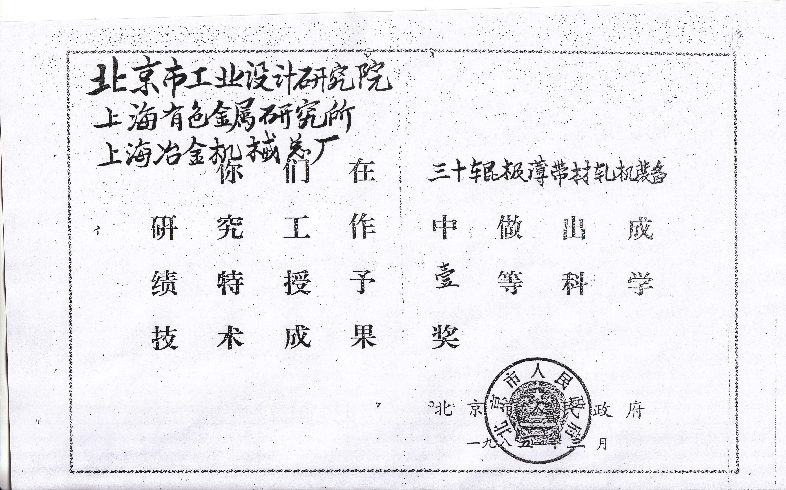 北京市工业设计研究院
上海有色金属研究所
上海冶金机械总厂
你们在 三十辊极薄带材轧机装备
研究工作中做出成
绩特授予壹等科学
技术成果奖
北京市人民政府
北京市人民政府
一九 五 年 三月